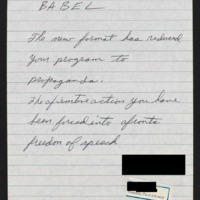 BABEL
The new format has reduced
your program to
propaganda.
The afrontive action you have
been forced into afronts
freedom of speech